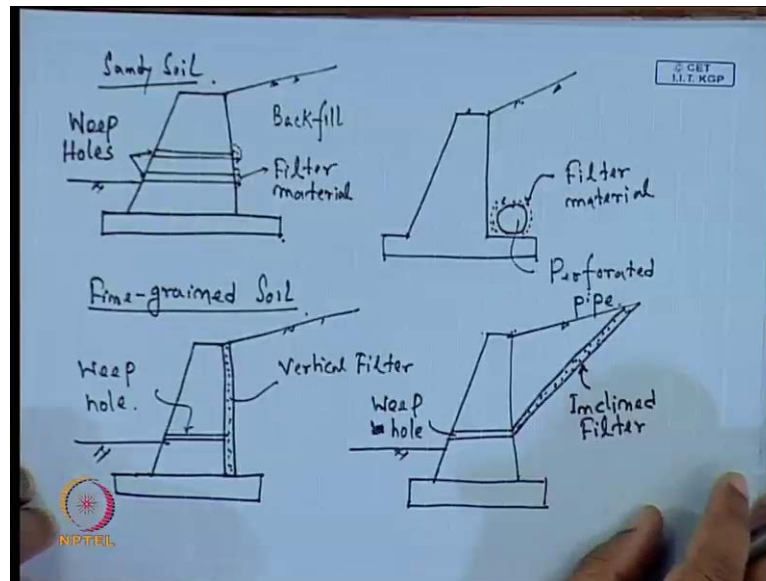 Sandy Soil.
© CET
I.I.T. KGP
Weep
Holes
Backfill
Filter
material
Filter
material
Perforated
pipe.
Fine-grained Soil
Weep
hole.
Vertical Filter
Weep
hole
Inclined
Filter
NPTEL